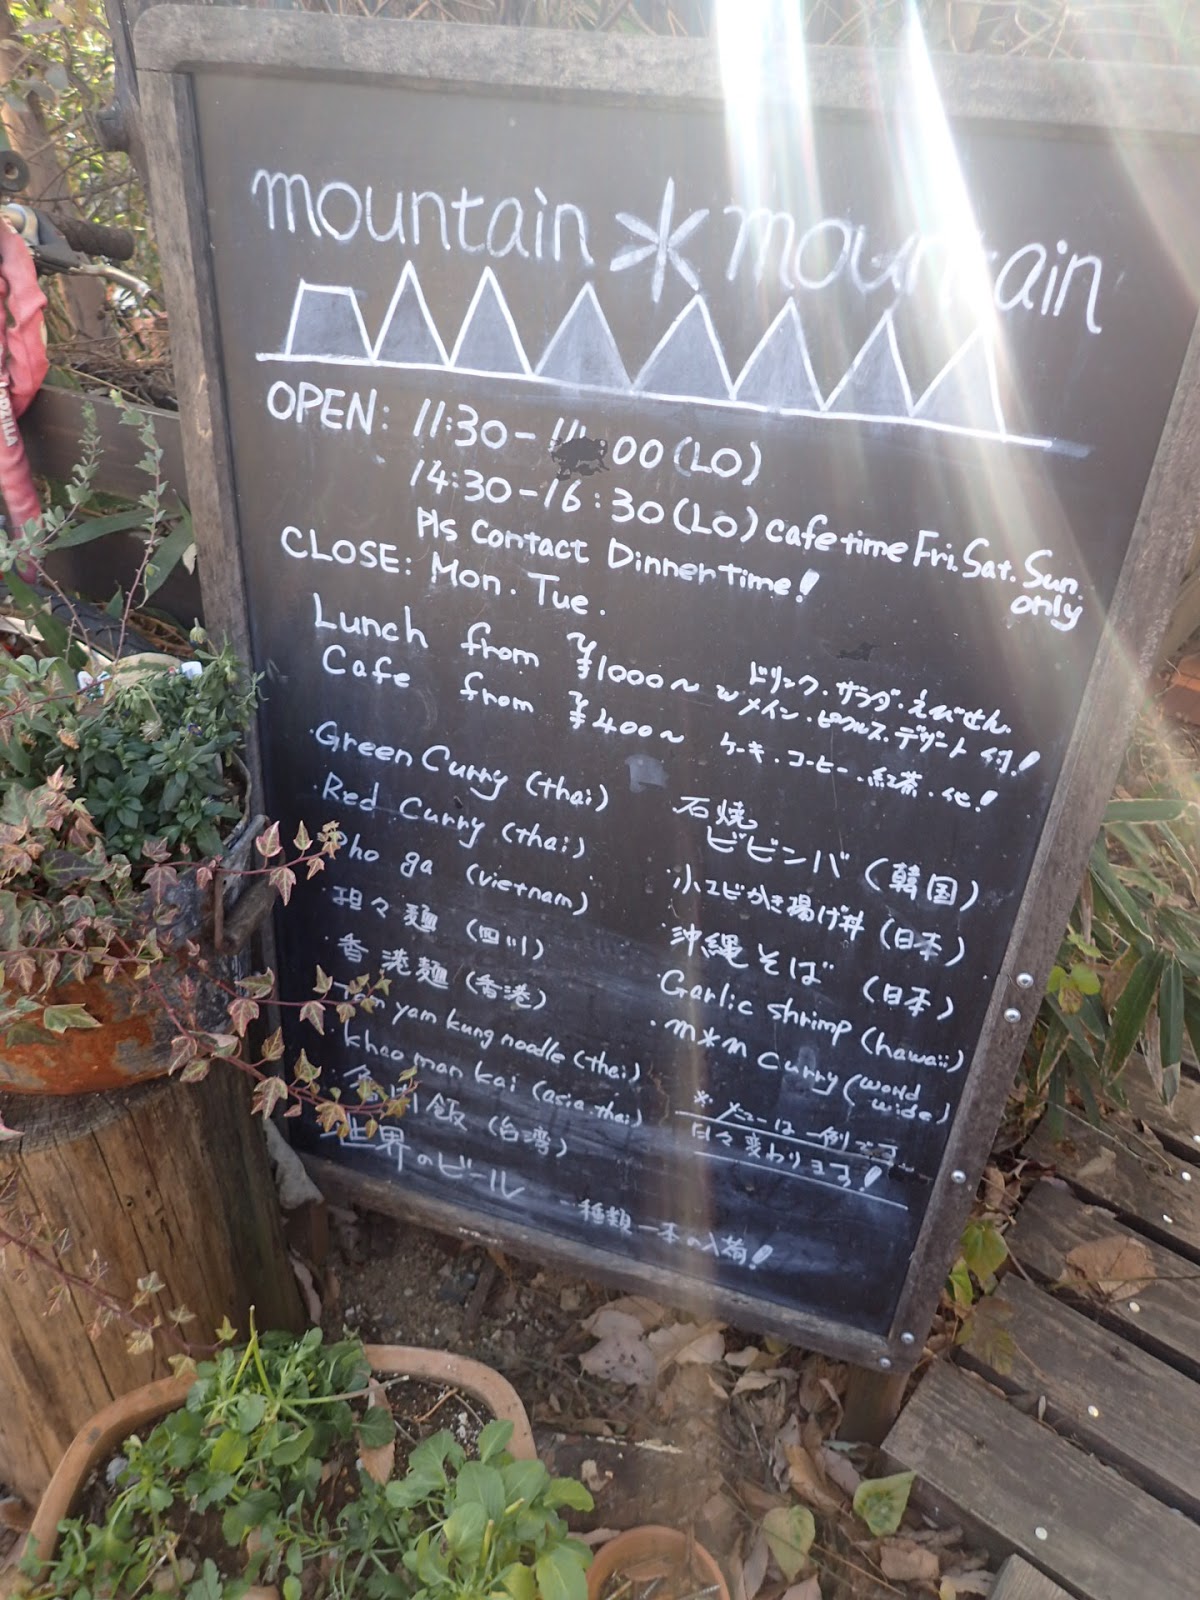 mountain * mountain
OPEN: 11:30 - 00 (LO)
14:30 - 16:30 (LO) cafe time Fri. Sat. Sun. only
Pls contact Dinner time!
CLOSE: Mon. Tue.
Lunch from ¥1000~ w ドリンク・サラダ・えびせん
メイン・ピクルス・デザート付!
Cafe from ¥400~ ケーキ・コーヒー・紅茶・他!
・Green Curry (thai)
・Red Curry (thai)
Pho ga (vietnam)
坦々麺 (四川)
・香港麺 (香港)
Tom yam kung noodle (thai)
khao man kai (asia.thai)
飯 (台湾)
世界のビール 一種類一本の入荷!
石焼
ビビンバ (韓国)
・小エビかき揚げ丼 (日本)
・沖縄そば (日本)
・Garlic shrimp (hawaii)
・m*m curry (world wide)
※メニューは一例です
日々変わります!